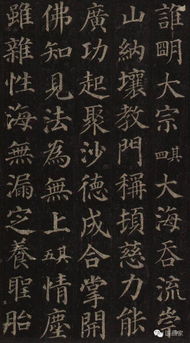 誰眀大宗其四大海吞流崇
山納壤教門稱頓慈力能
廣功起聚沙德成合掌開
佛知見法為無上其五情塵
雖雜性海無漏定養聖胎